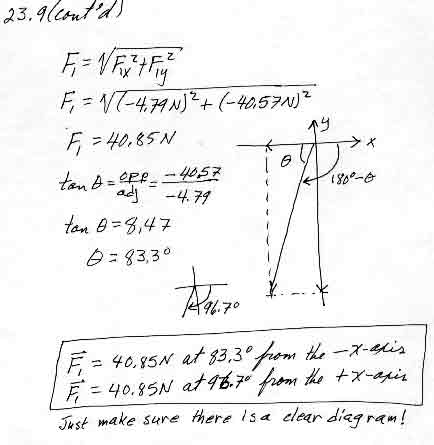 23.9(cont'd)
F₁ = √F₁ₓ²+F₁y²
F₁ = √(-4.79N)²+(-40.57N)²
F₁ = 40.85N
tan θ = opp/adj = -40.57/-4.79
tan θ = 8.47
θ = 83.3°
y
x
θ
180°-θ
96.7°
F⃗₁ = 40.85N at 83.3° from the -x-axis
F⃗₁ = 40.85N at 96.7° from the +x-axis
Just make sure there is a clear diagram!